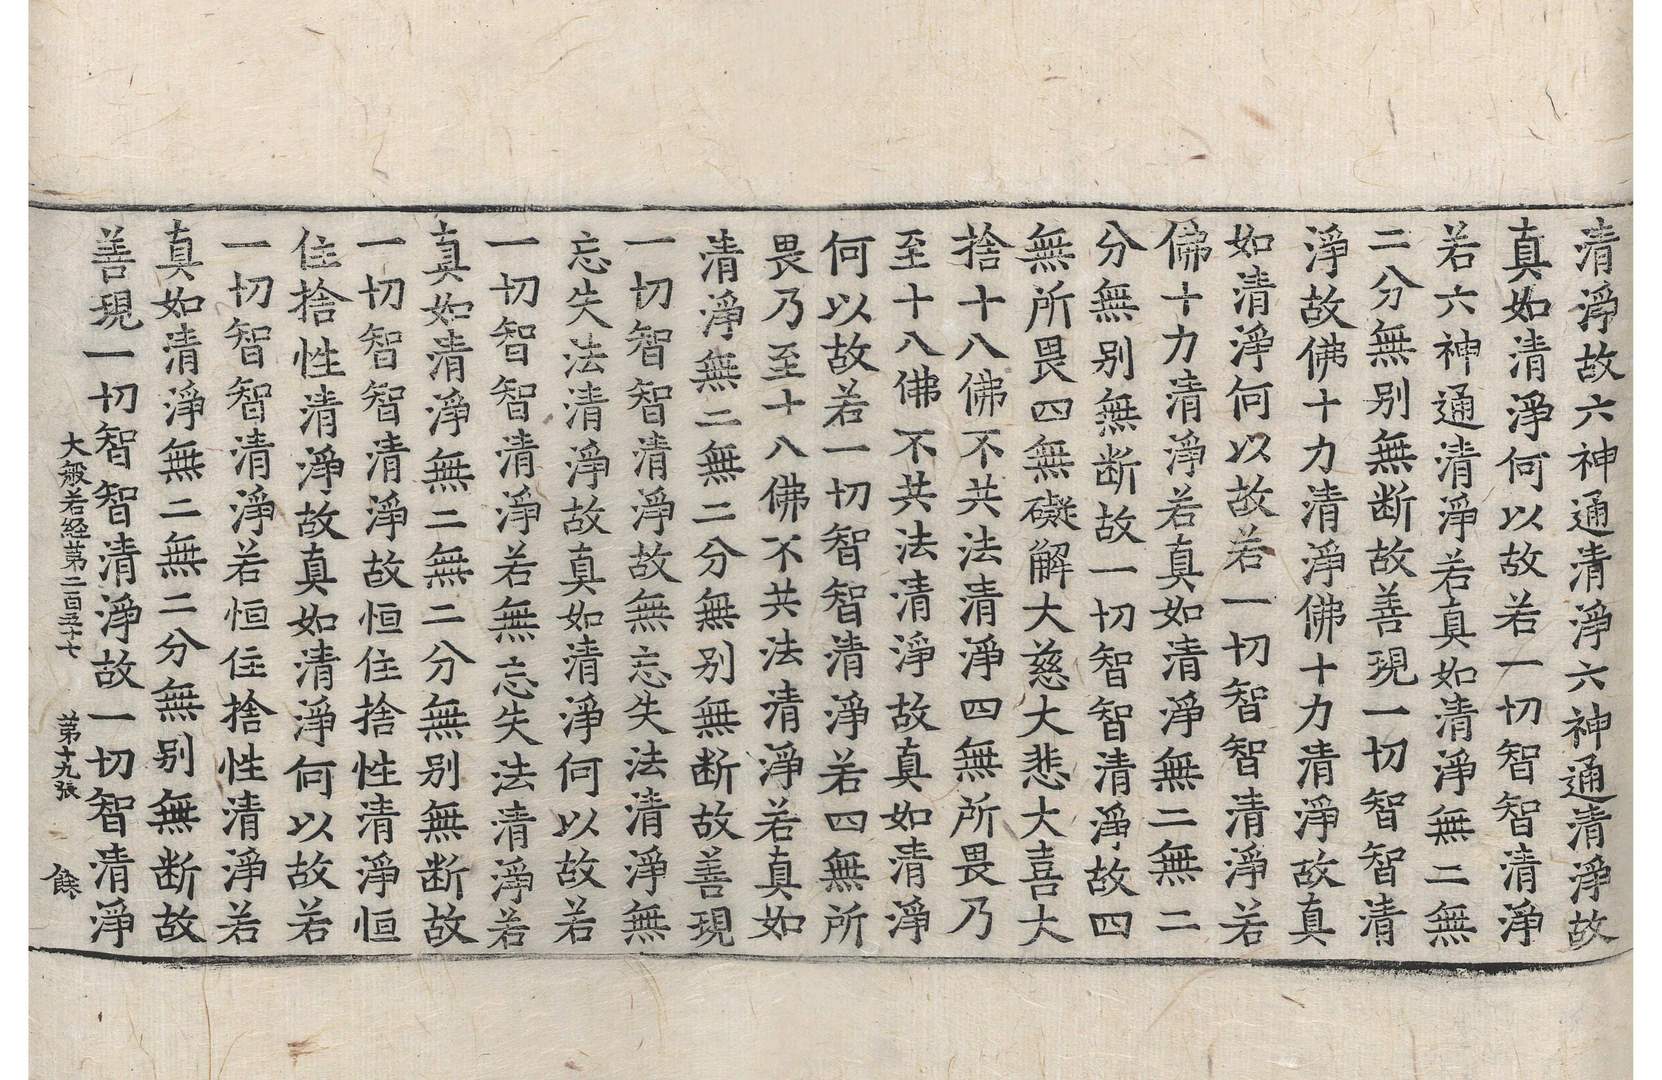 清淨故六神通清淨六神通清淨故
真如清淨何以故若一切智智清淨
若六神通清淨若真如清淨無二無
二分無別無断故善現一切智智清
淨故佛十力清淨佛十力清淨故真
如清淨何以故若一切智智清淨若
佛十力清淨若真如清淨無二無二
分無別無断故一切智智清淨故四
無所畏四無礙解大慈大悲大喜大
捨十八佛不共法清淨四無所畏乃
至十八佛不共法清淨故真如清淨
何以故若一切智智清淨若四無所
畏乃至十八佛不共法清淨若真如
清淨無二無二分無別無断故善現
一切智智清淨故無忘失法清淨無
忘失法清淨故真如清淨何以故若
一切智智清淨若無忘失法清淨若
真如清淨無二無二分無別無断故
一切智智清淨故恒住捨性清淨恒
住捨性清淨故真如清淨何以故若
一切智智清淨若恒住捨性清淨若
真如清淨無二無二分無別無断故
善現一切智智清淨故一切智智清淨
大般若経第二百五十七 第十九張 餘